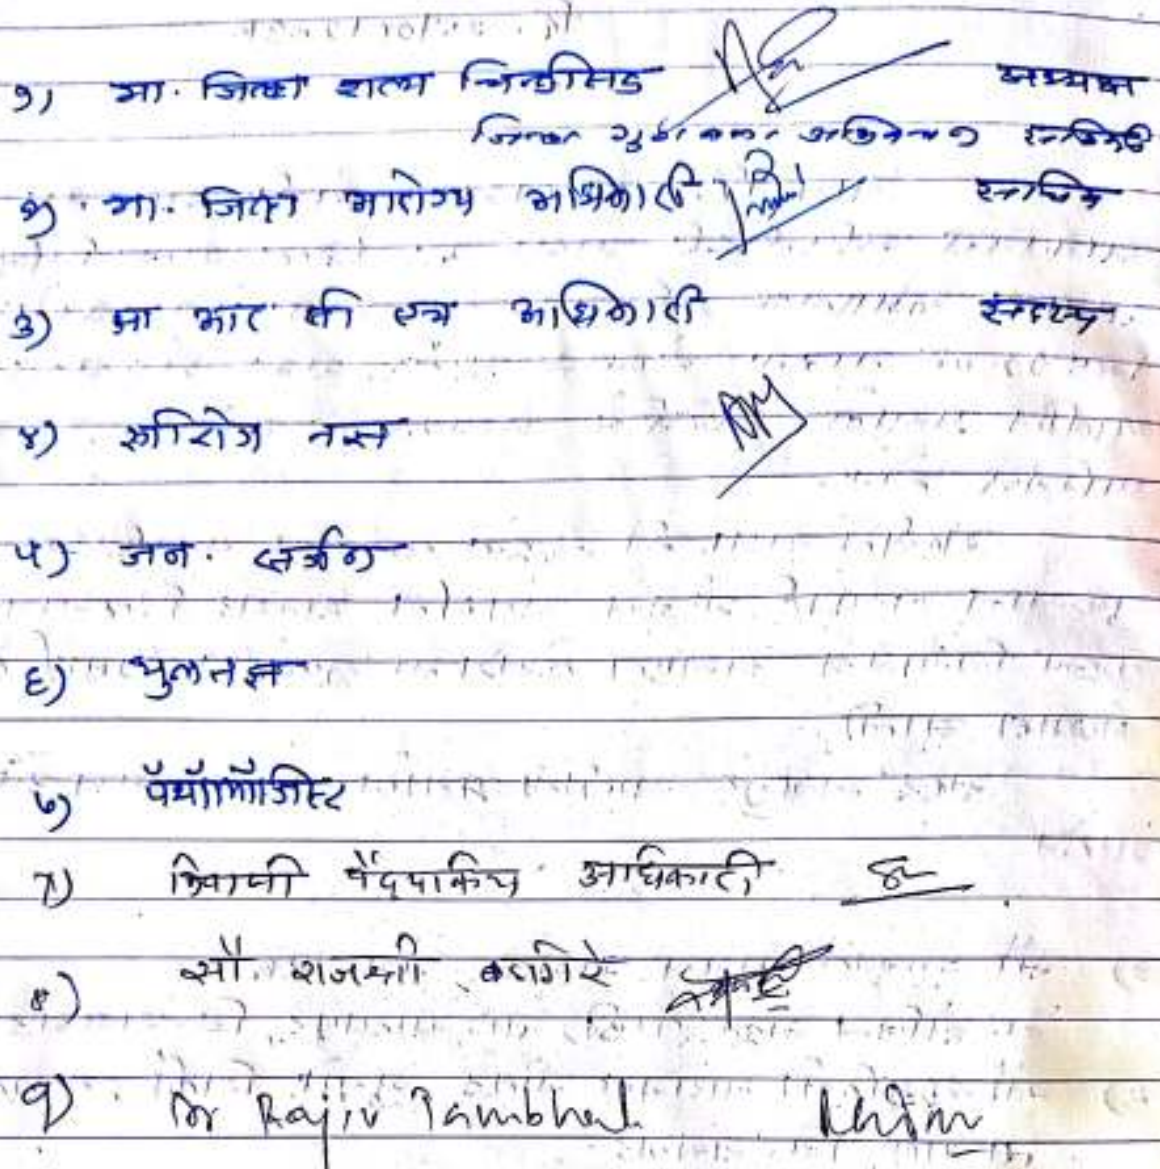 १) मा. जिल्हा शल्य चिकीत्सक अध्यक्ष
जिल्हा गुणवत्ता
२) मा. जिल्हा आरोग्य अधिकारी सचिव
३) मा आर सी एच अधिकारी सदस्य
४) स्त्रीरोग तज्ञ
५) जन. सर्जन
६) भुलतज्ञ
७) पॅथॉलॉजिस्ट
7) निवासी वैद्यकिय अधिकारी
८) सौ. राजश्री
९) Dr Rajiv